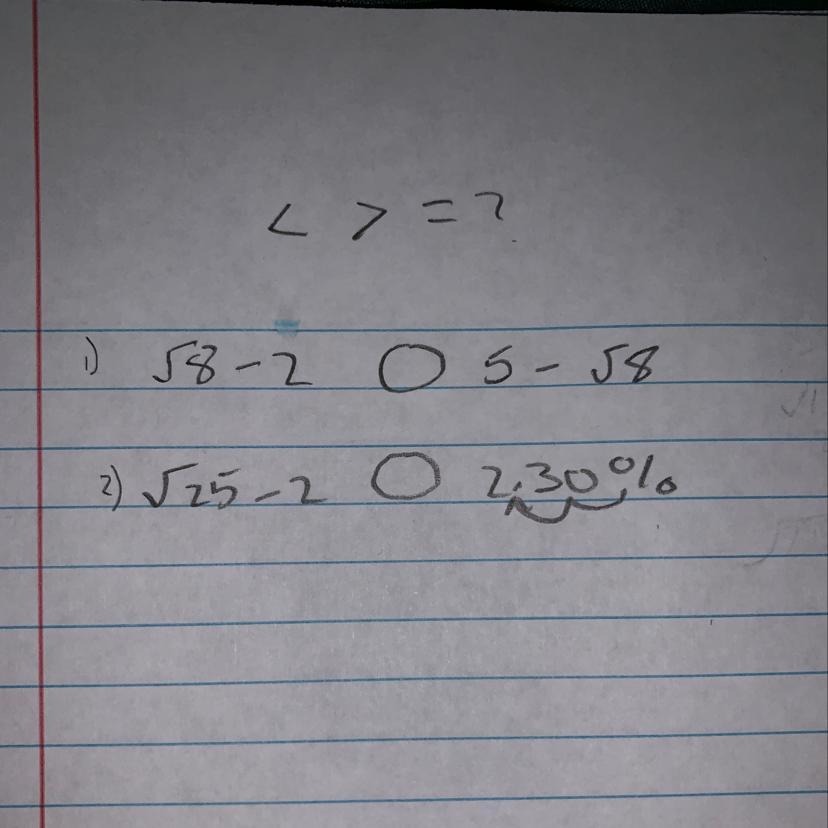 < > = ?
1) √8 - 2 ◯ 5 - √8
2) √25 - 2 ◯ 2.30%